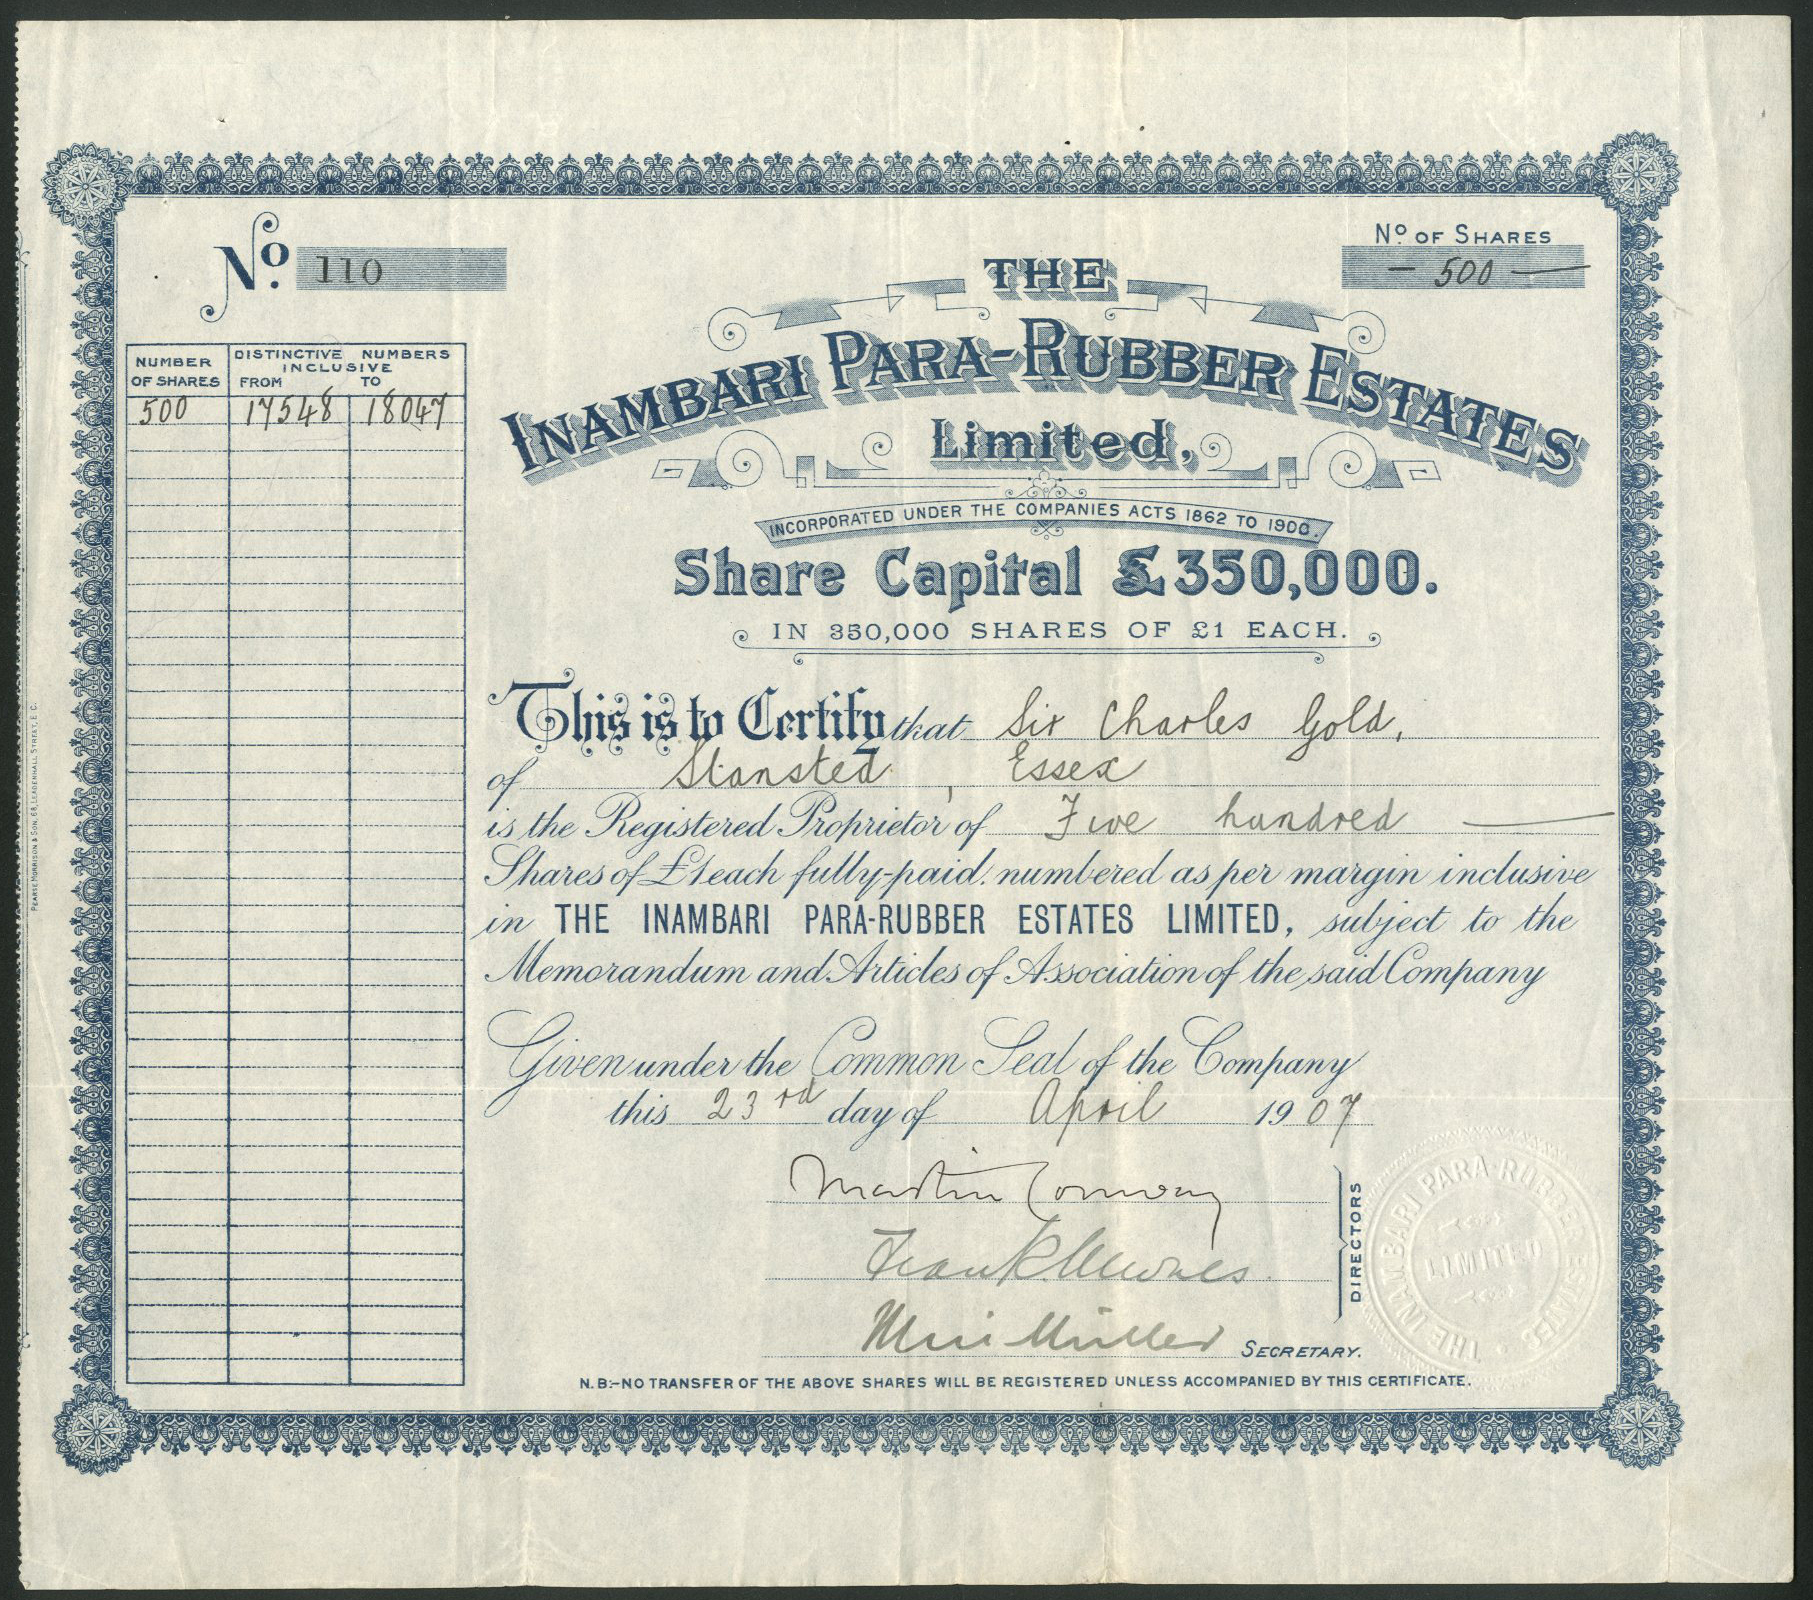 No. 110
No OF SHARES
— 500 —
NUMBER OF SHARES
DISTINCTIVE NUMBERS INCLUSIVE
FROM TO
500 17548 18047
THE
INAMBARI PARA-RUBBER ESTATES
Limited,
INCORPORATED UNDER THE COMPANIES ACTS 1862 TO 1900.
Share Capital £350,000.
IN 350,000 SHARES OF £1 EACH.
This is to Certify that Sir Charles Gold,
of Stansted, Essex
is the Registered Proprietor of Five hundred —
Shares of £1 each fully-paid. numbered as per margin inclusive
in THE INAMBARI PARA-RUBBER ESTATES LIMITED, subject to the
Memorandum and Articles of Association of the said Company
Given under the Common Seal of the Company
this 23rd day of April 1907
Martin Conway
Frank Newnes
Müller
DIRECTORS
SECRETARY.
THE INAMBARI PARA-RUBBER ESTATES
LIMITED
N.B:-NO TRANSFER OF THE ABOVE SHARES WILL BE REGISTERED UNLESS ACCOMPANIED BY THIS CERTIFICATE.
PEARSE MORRISON & SON, 68, LEADENHALL STREET, E.C.